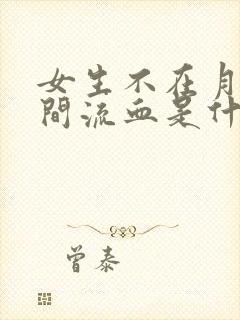 女生不在月
間流血是什
曾泰